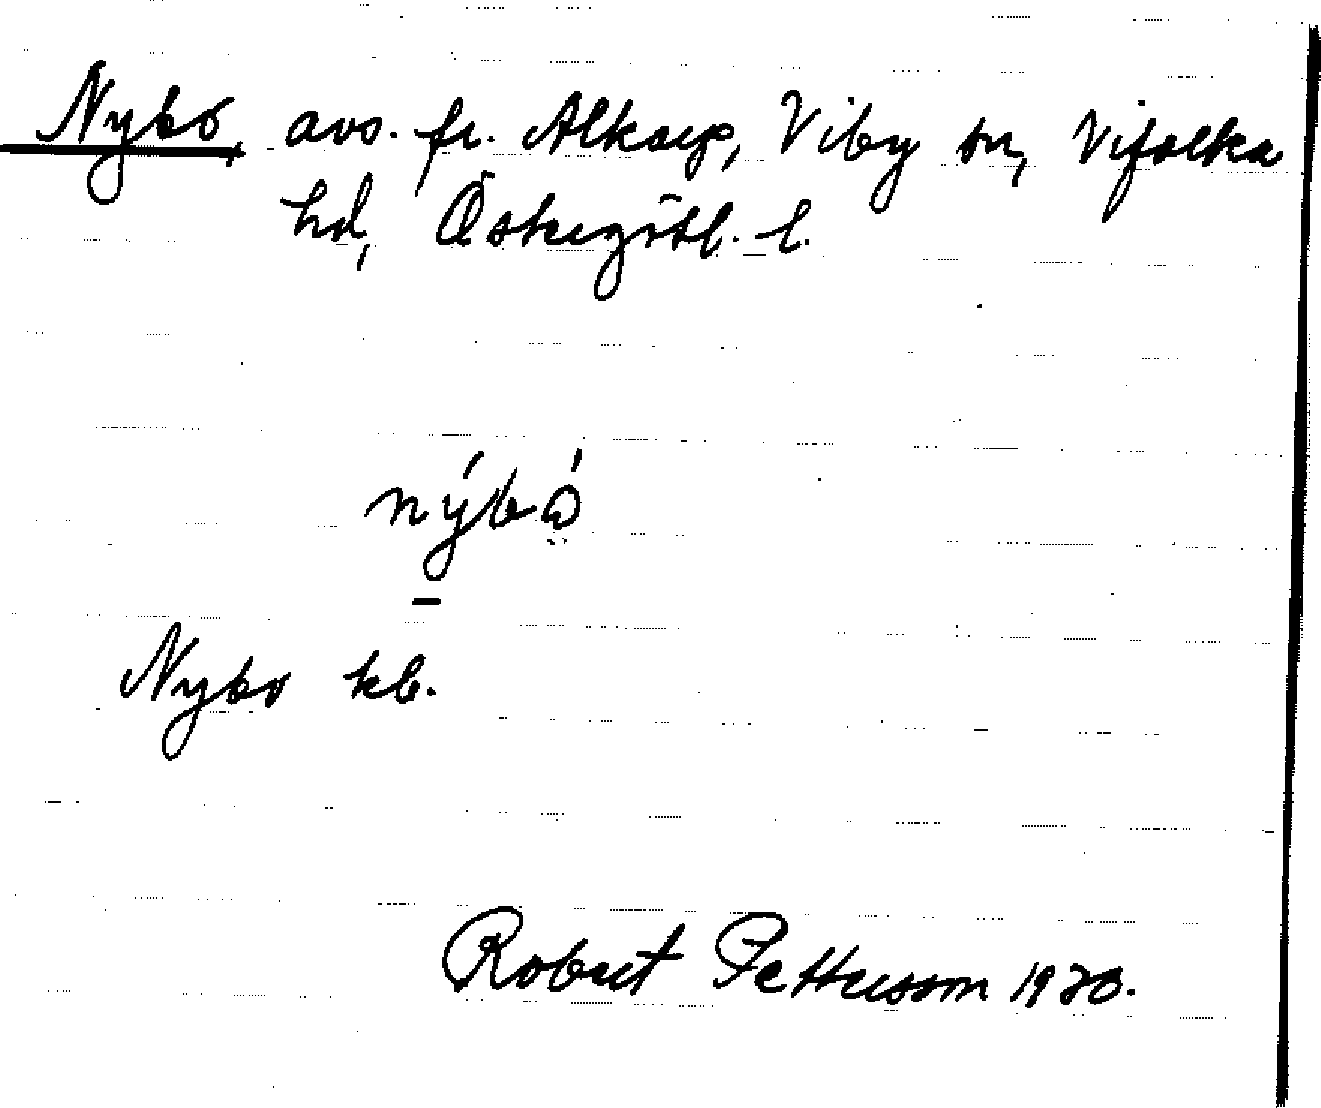 Nybo, avs. fr. Alkarp, Viby sn, Vifolka
hd, Östergötl. l.
nýbó
Nybo kb.
Robert Pettersson 1920.